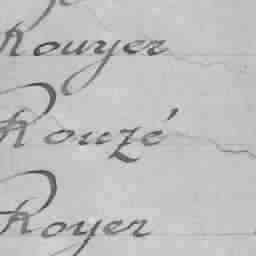 Rouyer
Rouzé
Royer